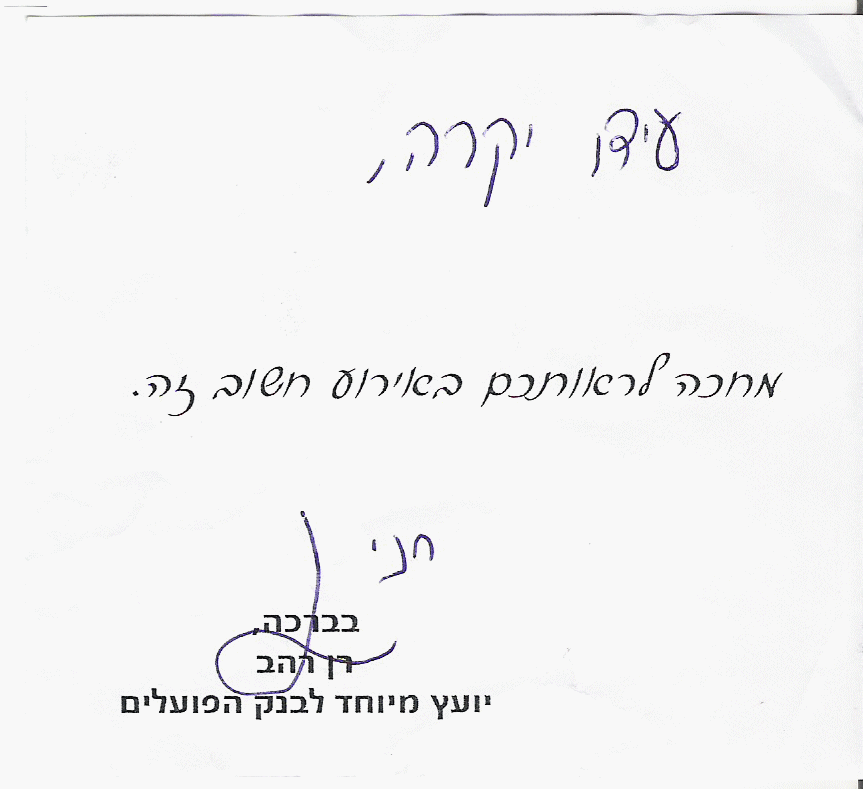 עידו יקרה,
מחכה לראותכם באירוע חשוב זה.
חני
בברכה,
רן רהב
יועץ מיוחד לבנק הפועלים